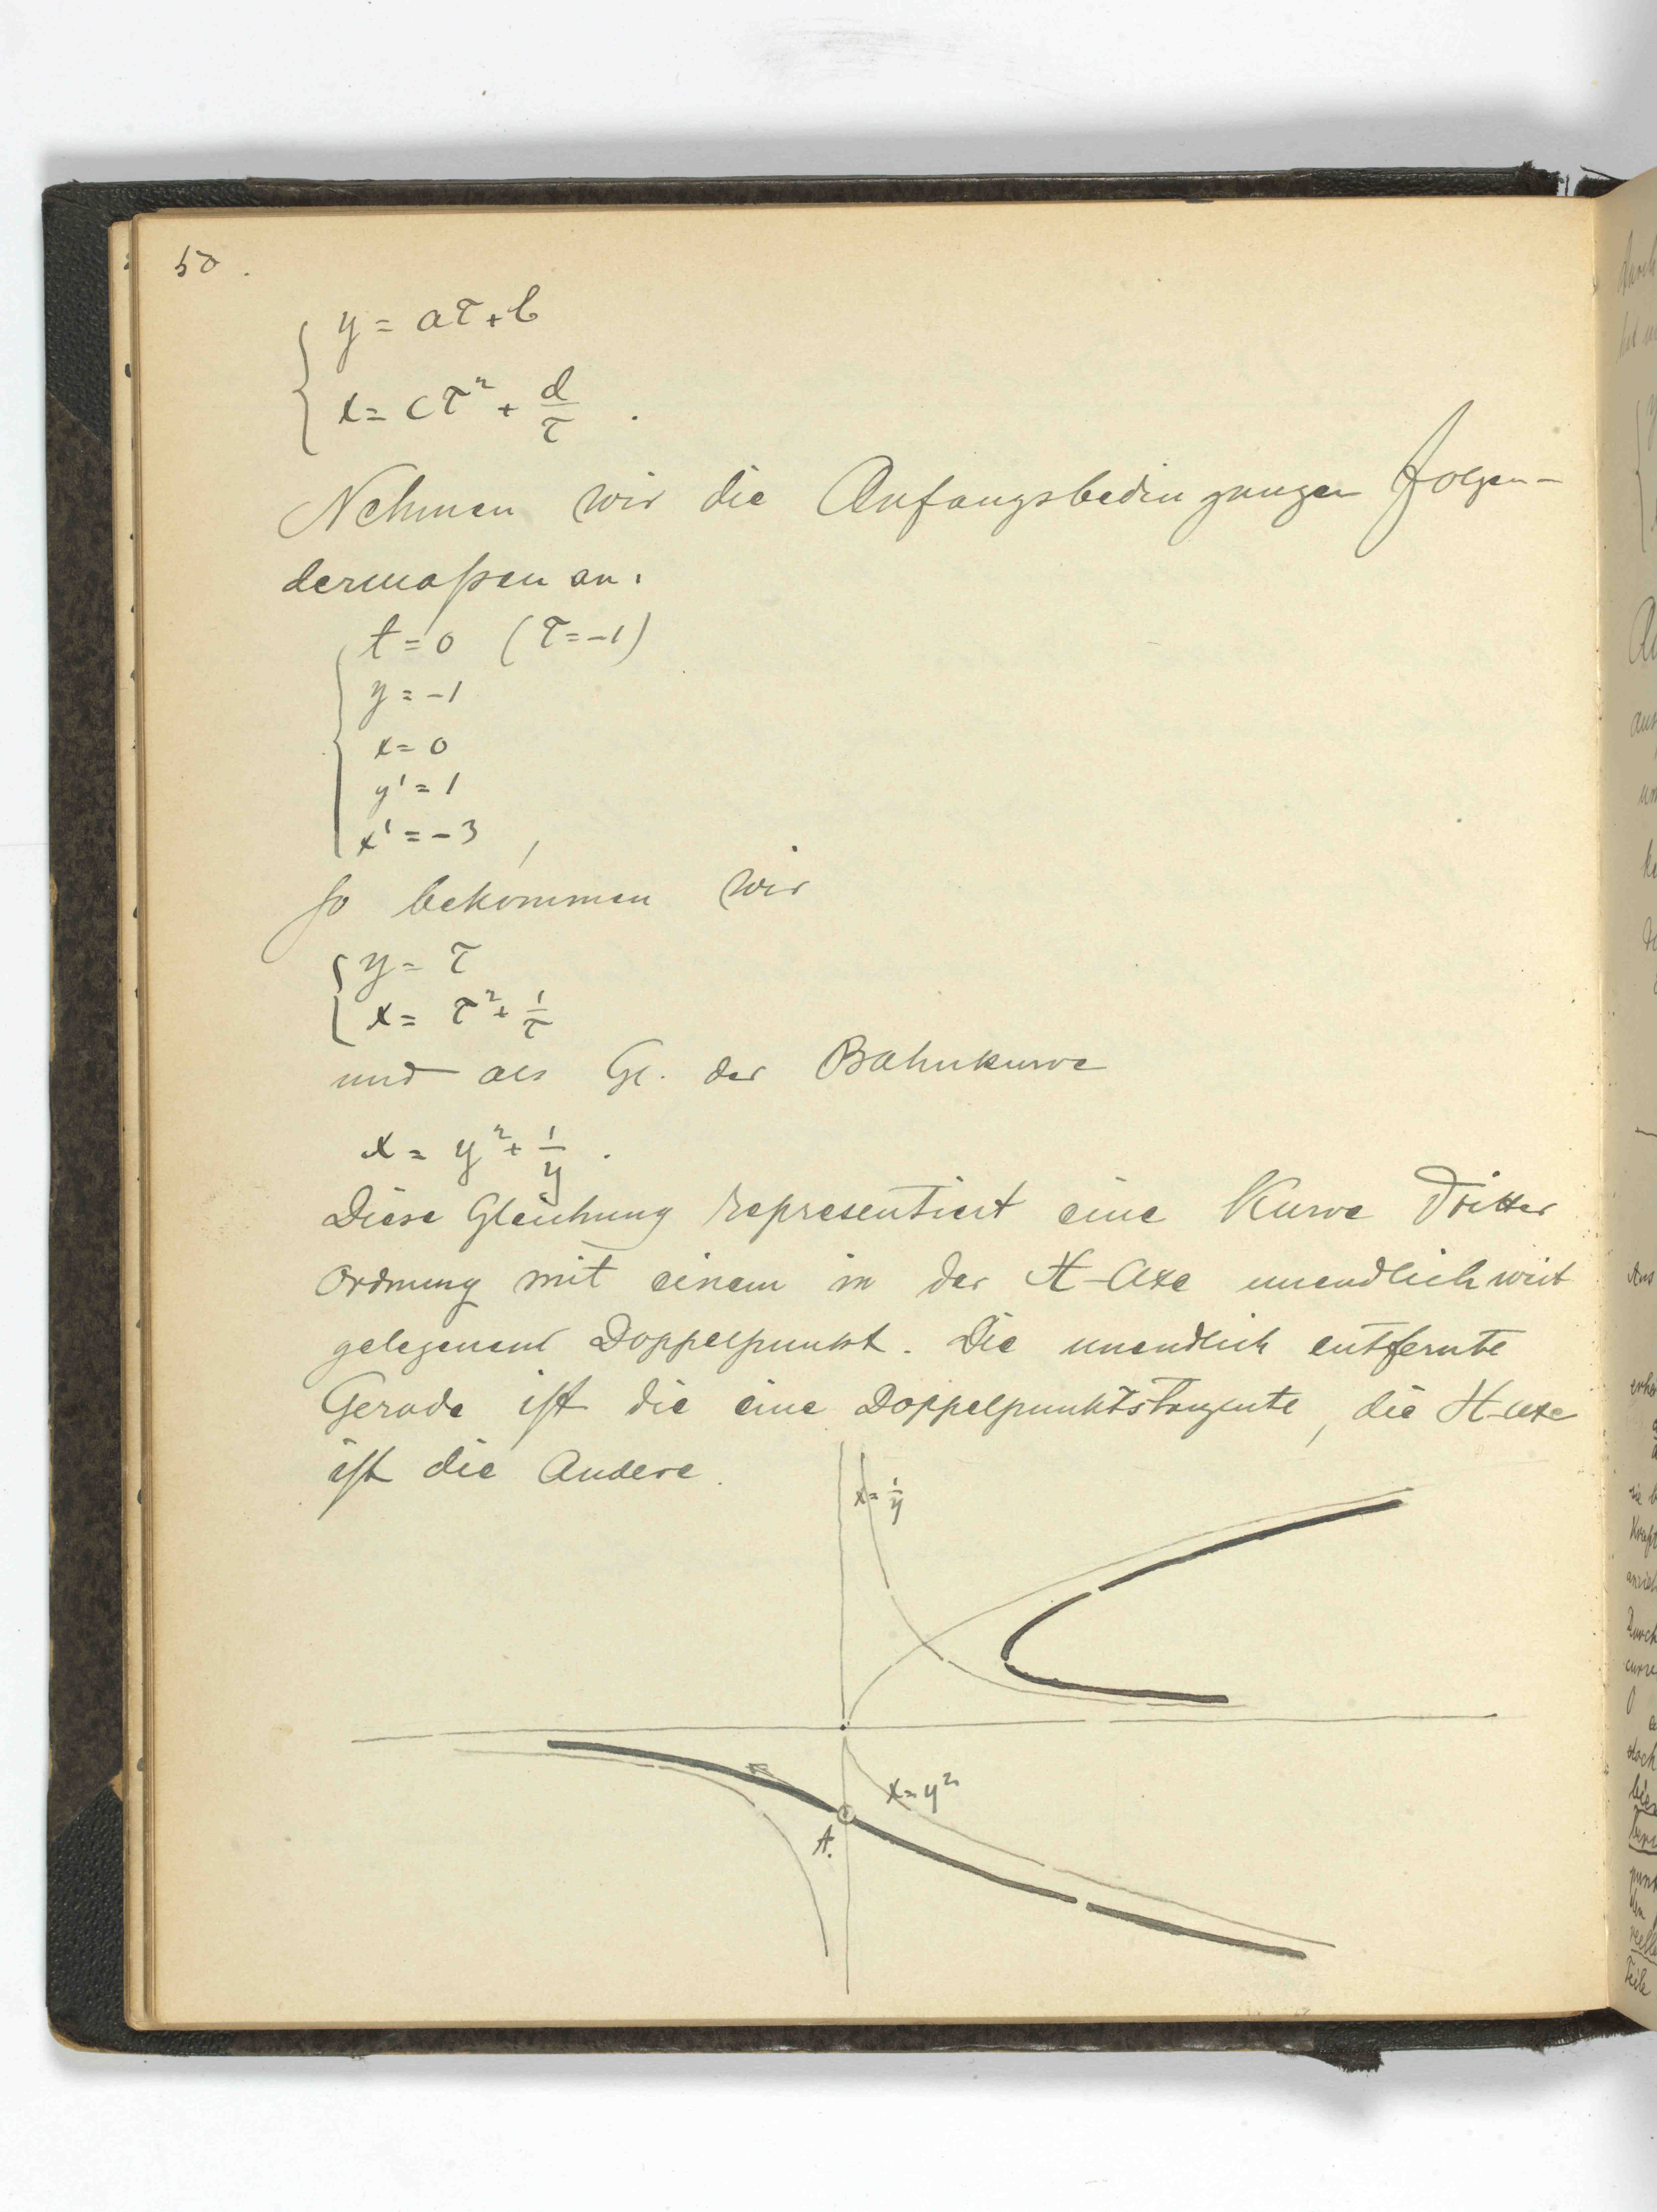 50.
y = aτ + b
x = cτ² + d/τ .
Nehmen wir die Anfangsbedingungen folgen-
dermaßen an:
t = 0 (τ = -1)
y = -1
x = 0
y' = 1
x' = -3 ,
so bekommen wir
y = τ
x = τ² + 1/τ
und als Gl. der Bahnkurve
x = y² + 1/y .
Diese Gleichung representiert eine Kurve dritter
Ordnung mit einem in der X-Axe unendlich weit
gelegenen Doppelpunkt. Die unendlich entfernte
Gerade ist die eine Doppelpunktstangente, die X-Axe
ist die Andere.
x = 1/y
x = y²
A.